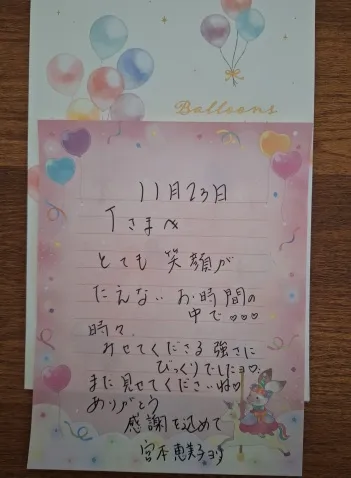 Balloons
11月23日
Tさまへ
とても 笑顔が
たえない お時間の
中で♡♡♡
時々
みせてくださる 強さに
びっくりでしたョ♡
また見せてくださいね♡
ありがとう
感謝を込めて
宮本恵美子より